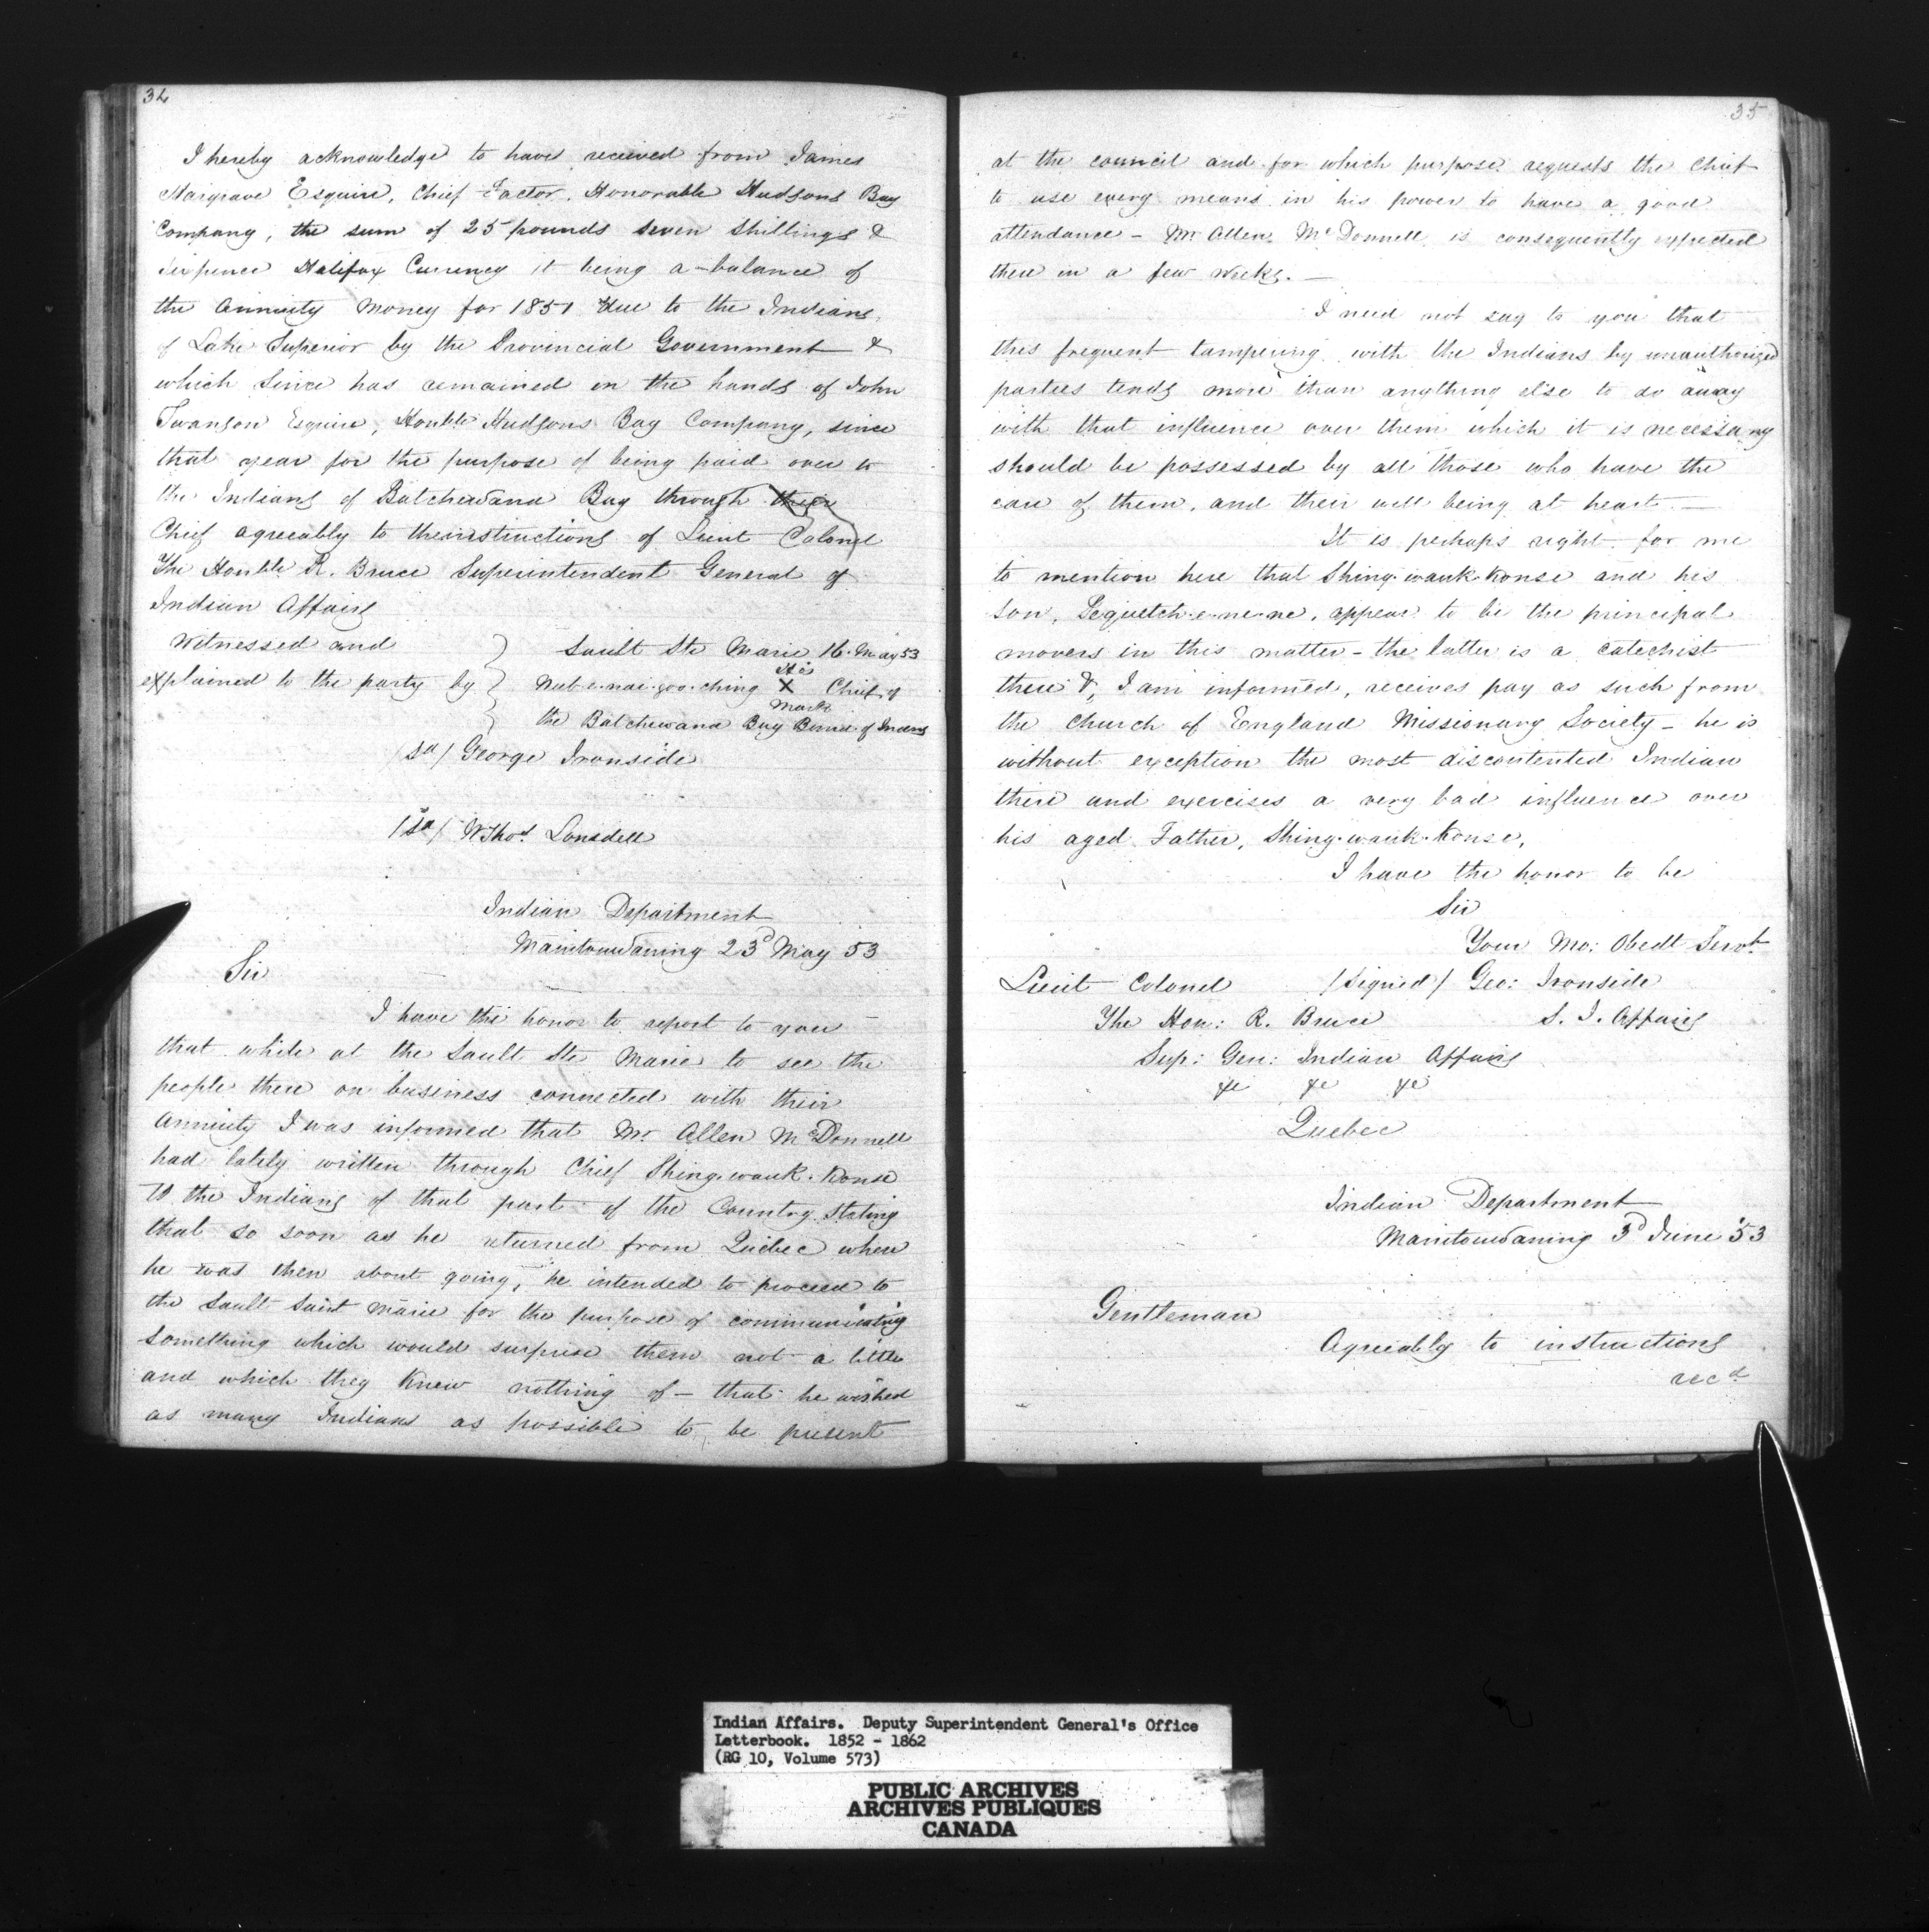 34
I hereby acknowledge to have received from James
Hargrave Esquire, Chief Factor, Honorable Hudsons Bay
Company, the sum of 25 pounds seven shillings &
sixpence Halifax Currency it being a balance of
the Annuity Money for 1851 due to the Indians
of Lake Superior by the Provincial Government &
which since has remained in the hands of John
Swanson Esquire, Honble Hudsons Bay Company, since
that year for the purpose of being paid over to
the Indians of Batchewana Bay through their
Chief agreeably to the instructions of Lieut Colonel
The Honble R. Bruce Superintendent General of
Indian Affairs
Witnessed and
explained to the party by
Sault Ste Marie 16 May 53
His
Nub-e-nai-goo-ching X Chief of
Mark
the Batchewana Bay Band of Indns
/sd/ George Ironside
/sd/ W Thos. Lonsdell
Indian Department
Manitouwaning 23d May 53
Sir
I have the honor to report to you
that while at the Sault Ste Marie to see the
people there on business connected with their
Annuity I was informed that Mr Allen McDonnell
had lately written through Chief Shing-wauk-konse
to the Indians of that part of the Country stating
that so soon as he returned from Quebec where
he was then about going, he intended to proceed to
the Sault Saint Marie for the purpose of communicating
something which would surprise them not a little
and which they knew nothing of – that he wished
as many Indians as possible to be present
35
at the council and for which purpose requests the Chief
to use every means in his power to have a good
attendance – Mr Allen McDonnell is consequently expected
there in a few weeks. —
I need not say to you that
this frequent tampering with the Indians by unauthorized
parties tends more than anything else to do away
with that influence over them which it is necessary
should be possessed by all those who have the
care of them, and their well being at heart. —
It is perhaps right for me
to mention here that Shing-wauk-konse and his
son, Bequetch-e-ne-ne, appear to be the principal
movers in this matter – the latter is a catechist
there &, I am informed, receives pay as such from
the Church of England Missionary Society – he is
without exception the most discontented Indian
there and exercises a very bad influence over
his aged Father, Shing-wauk-konse,
I have the honor to be
Sir
Your Mo: Obedt Servt
Lieut Colonel /signed/ Geo: Ironside
The Hon: R. Bruce S. I. Affairs
Sup: Gen: Indian Affairs
&c &c &c
Quebec
Indian Department
Manitouwaning 3d June 53
Gentleman
Agreeably to instructions
recd
Indian Affairs. Deputy Superintendent General's Office
Letterbook. 1852 - 1862
(RG 10, Volume 573)
PUBLIC ARCHIVES
ARCHIVES PUBLIQUES
CANADA